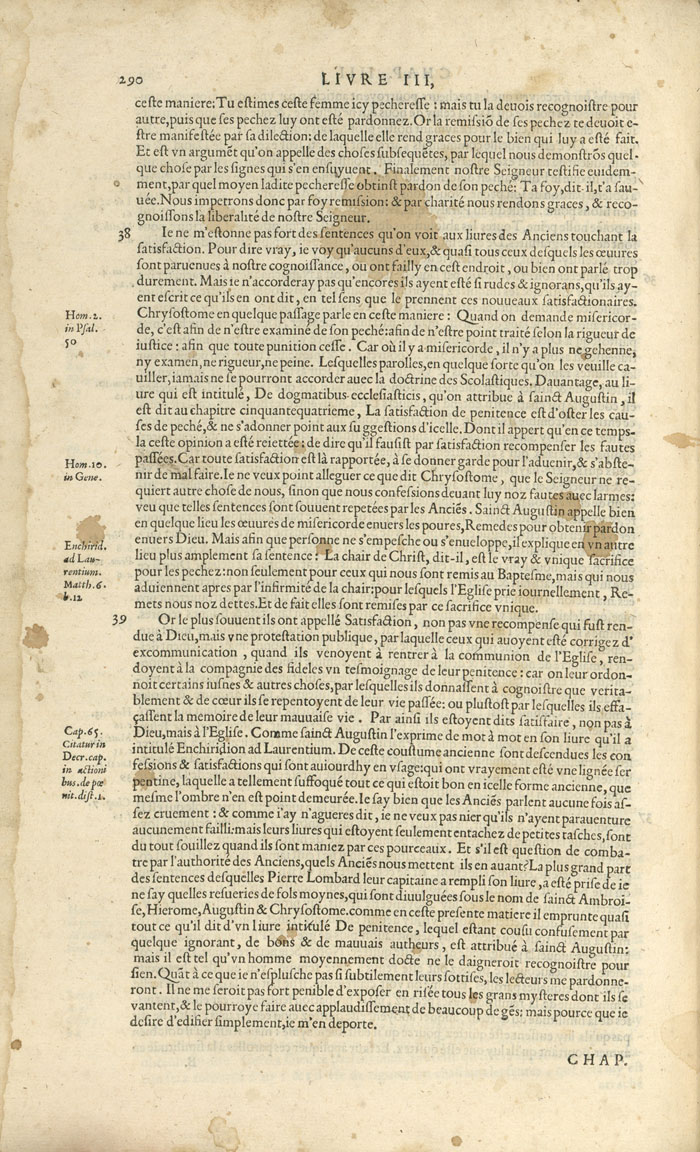 290 LIVRE III,
ceſte maniere: Tu eſtimes ceſte femme icy pechereſſe: mais tu la deuois recognoiſtre pour
autre, puis que ſes pechez luy ont eſté pardonnez. Or la remiſſiõ de ſes pechez te deuoit e-
ſtre manifeſtée par ſa dilection: de laquelle elle rend graces pour le bien qui luy a eſté fait.
Et eſt vn argumẽt qu'on appelle des choſes ſubſequẽtes, par lequel nous demonſtrõs quel-
que choſe par les ſignes qui s'en enſuyuent. Finalement noſtre Seigneur teſtifie euidem-
ment, par quel moyen ladite pechereſſe obtinſt pardon de ſon peché: Ta foy, dit-il, t'a ſau-
uée. Nous impetrons donc par foy remiſſion: & par charité nous rendons graces, & reco-
gnoiſſons la liberalité de noſtre Seigneur.
38 Ie ne m'eſtonne pas fort des ſentences qu'on voit aux liures des Anciens touchant la
ſatisfaction. Pour dire vray, ie voy qu'aucuns d'eux, & quaſi tous ceux deſquels les œuures
ſont paruenues à noſtre cognoiſſance, ou ont failly en ceſt endroit, ou bien ont parlé trop
durement. Mais ie n'accorderay pas qu'encores ils ayent eſté ſi rudes & ignorans, qu'ils ay-
ent eſcrit ce qu'ils en ont dit, en tel ſens que le prennent ces nouueaux ſatisfactionaires.
Hom. 2.
in Pſal.
50
Chryſoſtome en quelque paſſage parle en ceſte maniere: Quand on demande miſericor-
de, c'eſt afin de n'eſtre examiné de ſon peché: afin de n'eſtre point traité ſelon la rigueur de
iuſtice: afin que toute punition ceſſe. Car où il y a miſericorde, il n'y a plus ne gehenne,
ny examen, ne rigueur, ne peine. Leſquelles parolles, en quelque ſorte qu'on les veuille ca-
uiller, iamais ne ſe pourront accorder auec la doctrine des Scolaſtiques. Dauantage, au li-
ure qui eſt intitulé, De dogmatibus eccleſiaſticis, qu'on attribue à ſainct Auguſtin, il
eſt dit au chapitre cinquantequatrieme, La ſatisfaction de penitence eſt d'oſter les cau-
ſes de peché, & ne s'adonner point aux ſuggeſtions d'icelle. Dont il appert qu'en ce temps-
la ceſte opinion a eſté reiettée: de dire qu'il fauſiſt par ſatisfaction recompenſer les fautes
Hom. 10.
in Gene.
paſſées. Car toute ſatisfaction eſt là rapportée, à ſe donner garde pour l'aduenir, & s'abſte-
nir de mal faire. Ie ne veux point alleguer ce que dit Chryſoſtome, que le Seigneur ne re-
quiert autre choſe de nous, ſinon que nous confeſſions deuant luy noz fautes auec larmes:
veu que telles ſentences ſont ſouuent repetées par les Anciẽs. Sainct Auguſtin appelle bien
en quelque lieu les œuures de miſericorde enuers les poures, Remedes pour obtenir pardon
Enchirid.
ad Lau-
rentium.
Matth. 6.
b. 12
enuers Dieu. Mais afin que perſonne ne s'empeſche ou s'enueloppe, il explique en vn autre
lieu plus amplement ſa ſentence: La chair de Chriſt, dit-il, eſt le vray & vnique ſacrifice
pour les pechez: non ſeulement pour ceux qui nous ſont remis au Bapteſme, mais qui nous
aduiennent apres par l'infirmité de la chair: pour leſquels l'Egliſe prie iournellement, Re-
mets nous noz dettes. Et de fait elles ſont remiſes par ce ſacrifice vnique.
39 Or le plus ſouuent ils ont appellé Satisfaction, non pas vne recompenſe qui fuſt ren-
due à Dieu, mais vne proteſtation publique, par laquelle ceux qui auoyent eſté corrigez d'
excommunication, quand ils venoyent à rentrer à la communion de l'Egliſe, ren-
doyent à la compagnie des fideles vn teſmoignage de leur penitence: car on leur ordon-
noit certains iuſnes & autres choſes, par leſquelles ils donnaſſent à cognoiſtre que verita-
blement & de cœur ils ſe repentoyent de leur vie paſſée: ou pluſtoſt par leſquelles ils effa-
çaſſent la memoire de leur mauuaiſe vie. Par ainſi ils eſtoyent dits ſatisfaire, non pas à
Cap. 65.
Citatur in
Decr. cap.
in actioni
bus. de pœ
nit. diſt. 1.
Dieu, mais à l'Egliſe. Comme ſainct Auguſtin l'exprime de mot à mot en ſon liure qu'il a
intitulé Enchiridion ad Laurentium. De ceſte couſtume ancienne ſont deſcendues les con
feſſions & ſatisfactions qui ſont auiourdhy en vſage: qui ont vrayement eſté vne lignée ſer
pentine, laquelle a tellement ſuffoqué tout ce qui eſtoit bon en icelle forme ancienne, que
meſme l'ombre n'en eſt point demeurée. Ie ſay bien que les Anciẽs parlent aucune fois aſ-
ſez cruement: & comme i'ay n'agueres dit, ie ne veux pas nier qu'ils n'ayent parauenture
aucunement failli: mais leurs liures qui eſtoyent ſeulement entachez de petites taſches, ſont
du tout ſouillez quand ils ſont maniez par ces pourceaux. Et s'il eſt queſtion de comba-
tre par l'authorité des Anciens, quels Anciẽs nous mettent ils en auant? La plus grand part
des ſentences deſquelles Pierre Lombard leur capitaine a rempli ſon liure, a eſté priſe de ie
ne ſay quelles reſueries de fols moynes, qui ont diuulguées ſous le nom de ſainct Ambroi-
ſe, Hierome, Auguſtin & Chryſoſtome. comme en ceſte preſente matiere il emprunte quaſi
tout ce qu'il dit d'vn liure intitulé De penitence, lequel eſtant couſu confuſement par
quelque ignorant, de bons & de mauuais autheurs, eſt attribué à ſainct Auguſtin:
mais il eſt tel qu'vn homme moyennement docte ne le daigneroit recognoiſtre pour
ſien. Quãt à ce que ie n'eſpluſche pas ſi ſubtilement leurs ſottiſes, les lecteurs me pardonne-
ront. Il ne me ſeroit pas fort penible d'expoſer en riſée tous les grans myſteres dont ils ſe
vantent, & le pourroye faire auec applaudiſſement de beaucoup de gẽs: mais pource que ie
deſire d'edifier ſimplement, ie m'en deporte.
CHAP.